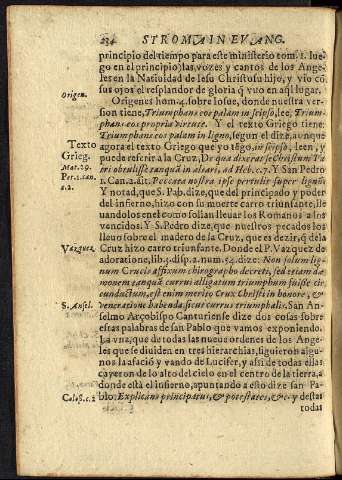 234 STROMA IN EVANG.
principio del tiempo para este ministerio tom. 1. lue-
go en el principio) las vozes y cantos de los Ange-
les en la Natiuidad de Iesu Christo su hijo, y vio cō
sus ojos el resplandor de gloria q̄ vuo en aq̄l lugar.
Origen.
Origenes hom. 4. sobre Iosue, donde nuestra ver-
sion tiene, Triumphans eos palam in seipso, lee, Trium-
phans eos propria virtute. Y el texto Griego tiene.
Triumphans eos palam in ligno, segun el dize, aunque
Texto Grieg.
agora el texto Griego que yo tēgo, in seipso, leen, y
puede referir a la Cruz, De qua dixerat se Christum Pa-
Mat. 29.
tri obtulisse tanquā in altari, ad Heb. c. 7. Y san Pedro
Per. 1. can. 2. 2.
1. Can. 2. ait. Peccata nostra ipse pertulit super lignū
Y notad, que S. Pab. dize, que del principado y poder
del infierno, hizo con su muerte carro triunfante, lle
uandolos en el como solian lleuar los Romanos a los
vencidos. Y S. Pedro dize, que nuestros pecados los
lleuo sobre el madero de la Cruz, que es dezir, q̄ de la
Vazquez
Cruz hizo carro triunfante. Donde el P. Vazquez de
adoratione, lib. 3. disp. 2. num. 54. dize: Non solum lig-
num Crucis affixum chirographo decreti, sed etiam dæ
monem tanquā currui alligatum triumphum fuisse cir
cunductum, est enim merito Crux Christi in honore, &
S. Ansel.
veneratione habenda sicut currus triumphalis. San An-
selmo Arçobispo Canturiense dize dos cosas sobre
estas palabras de san Pablo que vamos exponiendo.
La vna, que de todas las nueue ordenes de los Ange-
les que se diuiden en tres hierarchias, siguieron algu-
nos la asació y vando de Lucifer, y assi de todas ellas
cayeron de lo alto del cielo en el centro de la tierra, a
donde está el infierno, apuntando a esto dize san Pa-
Colos. c. 2
blo: Explicans principatus, & potestates, &c. y destas
todas